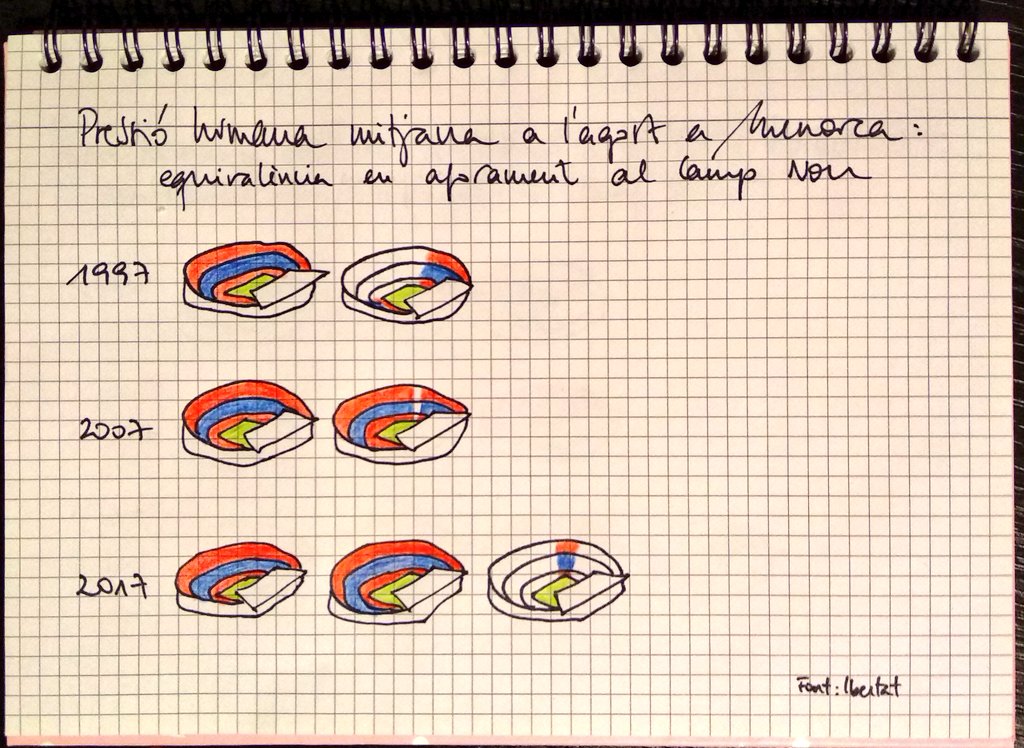 Pressió humana mitjana a l'agost a Menorca:
equivalència en aforament al Camp Nou
1997
2007
2017
Font: Ibestat